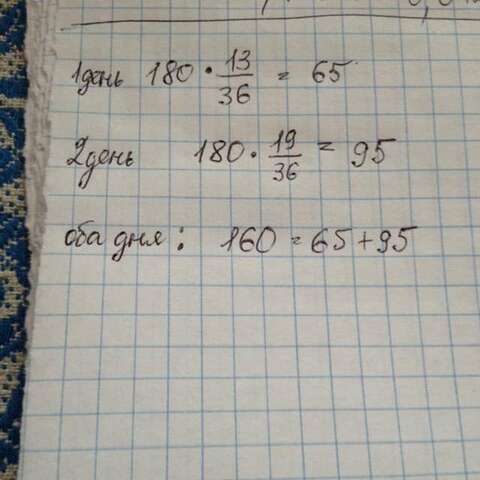 1 день 180 · 13/36 = 65
2 день 180 · 19/36 = 95
оба дня: 160 = 65 + 95